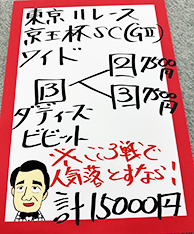 東京11レース
京王杯SC(GⅡ)
ワイド
13 2 7500円
3 7500円
ダディーズ
ビビット
※ここ1戦で
人気落とすなら!
計15000円